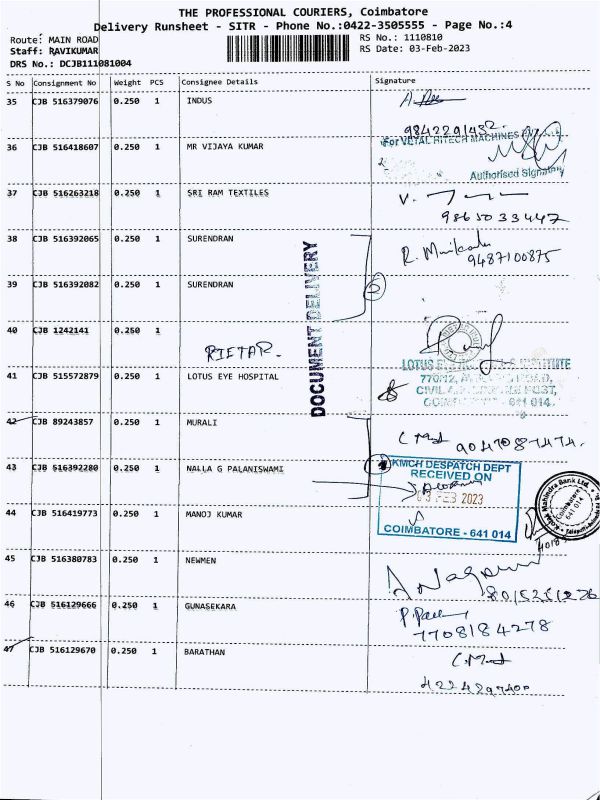 THE PROFESSIONAL COURIERS, Coimbatore
Delivery Runsheet - SITR - Phone No.:0422-3505555 - Page No.:4
Route: MAIN ROAD
Staff: RAVIKUMAR
DRS No.: DCJB111081004
RS No.: 1110810
RS Date: 03-Feb-2023
S No Consignment No Weight PCS Consignee Details Signature
35 CJB 516379076 0.250 1 INDUS
9842291452
36 CJB 516418607 0.250 1 MR VIJAYA KUMAR
For VETAL HITECH MACHINES
Authorised Signatory
37 CJB 516263218 0.250 1 SRI RAM TEXTILES
9865033447
38 CJB 516392065 0.250 1 SURENDRAN
9487100875
39 CJB 516392082 0.250 1 SURENDRAN
2
DOCUMENT DELIVERY
40 CJB 1242141 0.250 1
RIETAR.
41 CJB 515572879 0.250 1 LOTUS EYE HOSPITAL
LOTUS EYE INSTITUTE
770/12, ROAD,
CIVIL POST,
COIMBATORE - 641 014.
42 CJB 89243857 0.250 1 MURALI
9047087474.
43 CJB 516392280 0.250 1 NALLA G PALANISWAMI
KMCH DESPATCH DEPT
RECEIVED ON
03 FEB 2023
COIMBATORE - 641 014
44 CJB 516419773 0.250 1 MANOJ KUMAR
Kotak Mahindra Bank Ltd.
Coimbatore
641 014
45 CJB 516380783 0.250 1 NEWMEN
46 CJB 516129666 0.250 1 GUNASEKARA
7708184278
47 CJB 516129670 0.250 1 BARATHAN